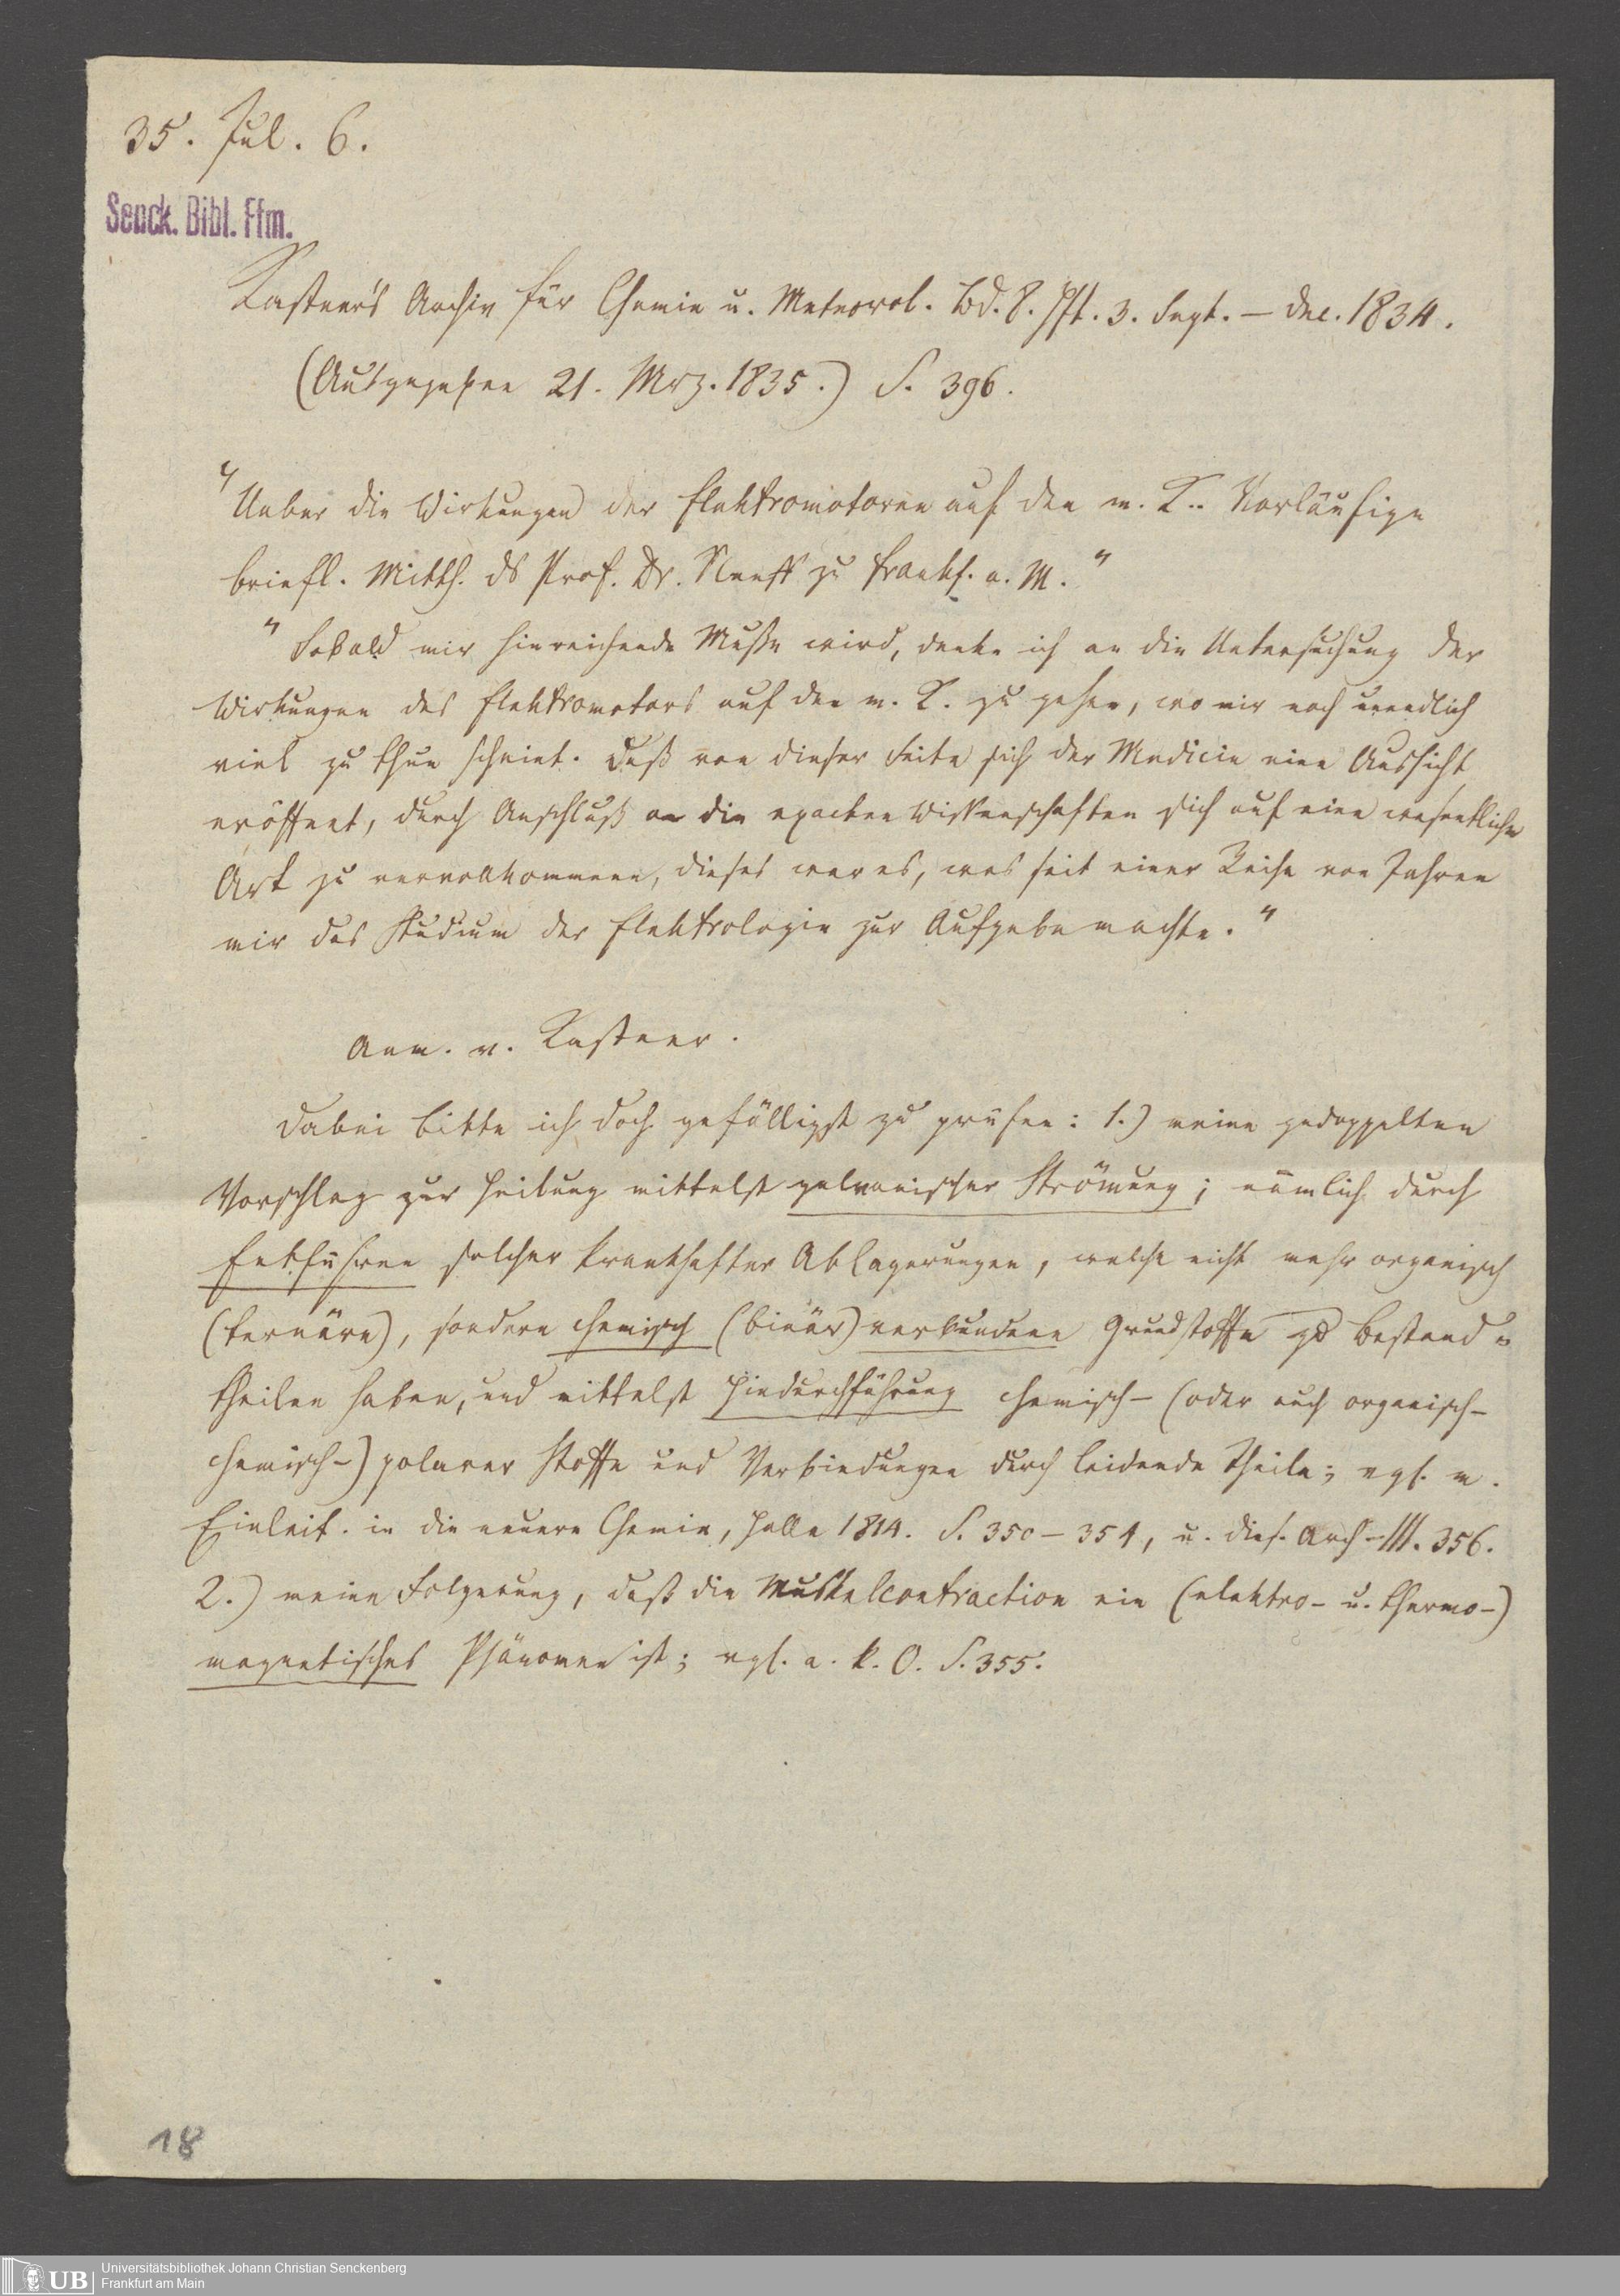 35. Jul. 6.
Senck. Bibl. Ffm.
Kastner's Archiv für Chemie u. Meteorol. Bd. 8. Hft. 3. Sept. – Dec. 1834.
(Ausgegeben 21. Mrz. 1835.) S. 396.
"Ueber die Wirkungen der Elektromotoren auf den m. K.. Vorläufige
briefl. Mitth. ds Prof. Dr. Neeff zu Frankf. a. M."
"Sobald mir hinreichende Muße wird, denke ich an die Untersuchung der
Wirkungen des Elektromotors auf den m. K. zu gehen, wo mir noch unendlich
viel zu thun scheint. Daß von dieser Seite sich der Medicin eine Aussicht
eröffnet, durch Anschluß an die exacten Wissenschaften sich auf eine wesentliche
Art zu vervollkommnen, dieses war es, was seit einer Reihe von Jahren
mir das Studium der Elektrologie zur Aufgabe machte."
Anm. v. Kastner.
Dabei bitte ich doch gefälligst zu prüfen: 1.) meine gedoppelten
Vorschlag zur Heilung mittelst galvanischer Strömung; nämlich durch
Entführen solcher krankhafter Ablagerungen, welche nicht mehr organisch
(ternäre), sondern chemisch (binär) verbundene Grundstoffe zu Bestand=
theilen haben, und mittelst Hindurchführung chemisch- (oder auch organisch-
chemisch-) polarer Stoffe und Verbindungen durch leidende Theile; vgl. m.
Einleit. in die neuere Chemie, Halle 1814. S. 350–351, u. dies. Arch. III. 356.
2.) meine Folgerung, daß die Muskelcontraction ein (elektro- u. thermo-)
magnetisches Phänomen ist; vgl. a. k. O. S. 355.
18
UB
Universitätsbibliothek Johann Christian Senckenberg
Frankfurt am Main